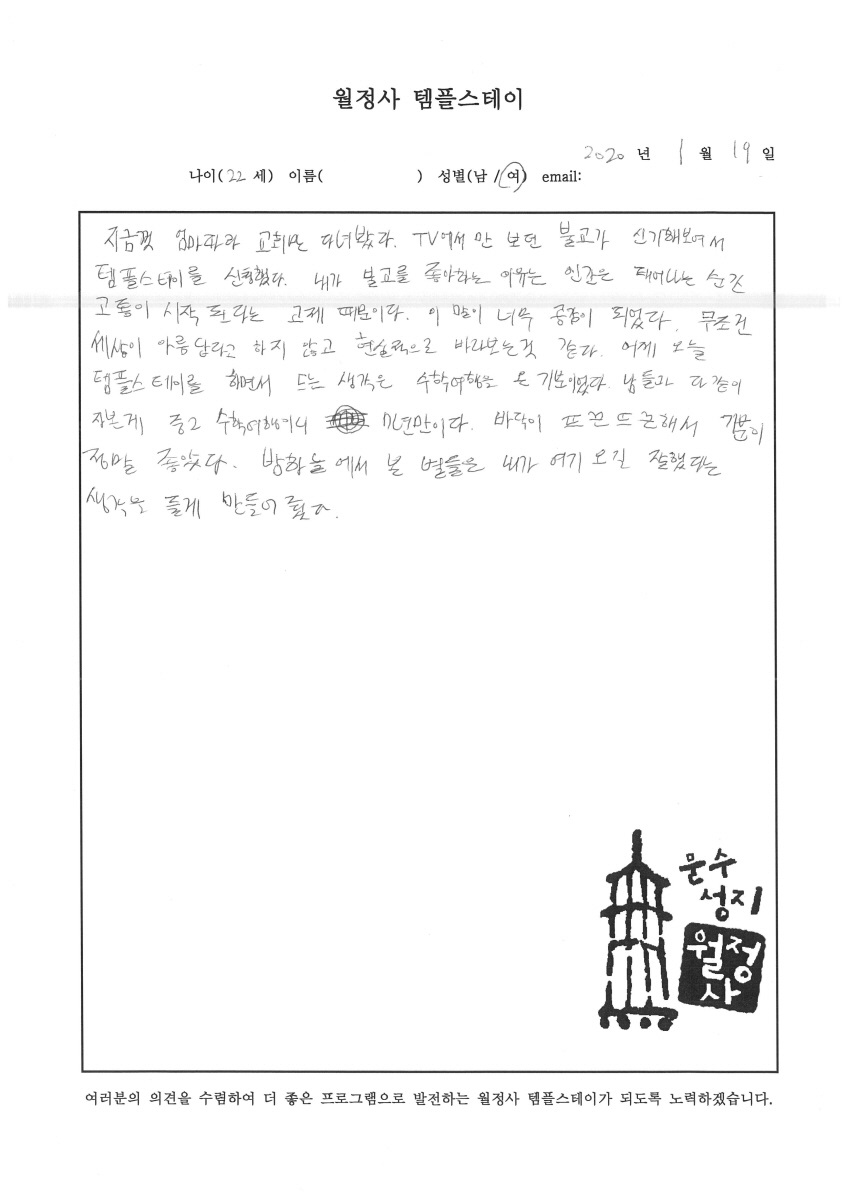 월정사 템플스테이
2020 년 1 월 19 일
나이( 22 세) 이름( ) 성별(남 / 여) email:
지금껏 엄마따라 교회만 다녀봤다. TV에서만 보던 불교가 신기해보여서
템플스테이를 신청했다. 내가 불교를 좋아하는 이유는 인간은 태어나는 순간
고통이 시작된다는 전제 때문이다. 이 말이 너무 공감이 되었다. 무조건
세상이 아름답다고 하지 않고 현실적으로 바라보는것 같다. 어제 오늘
템플스테이를 하면서 드는 생각은 수학여행을 온 기분이었다. 남들과 다같이
자본게 중2 수학여행이니 7년만이다. 바닥이 뜨끈뜨끈해서 기분이
정말 좋았다. 밤하늘에서 본 별들은 내가 여기 오길 잘했다는
생각을 들게 만들어 줬다.
문수
성지
월정
사
여러분의 의견을 수렴하여 더 좋은 프로그램으로 발전하는 월정사 템플스테이가 되도록 노력하겠습니다.